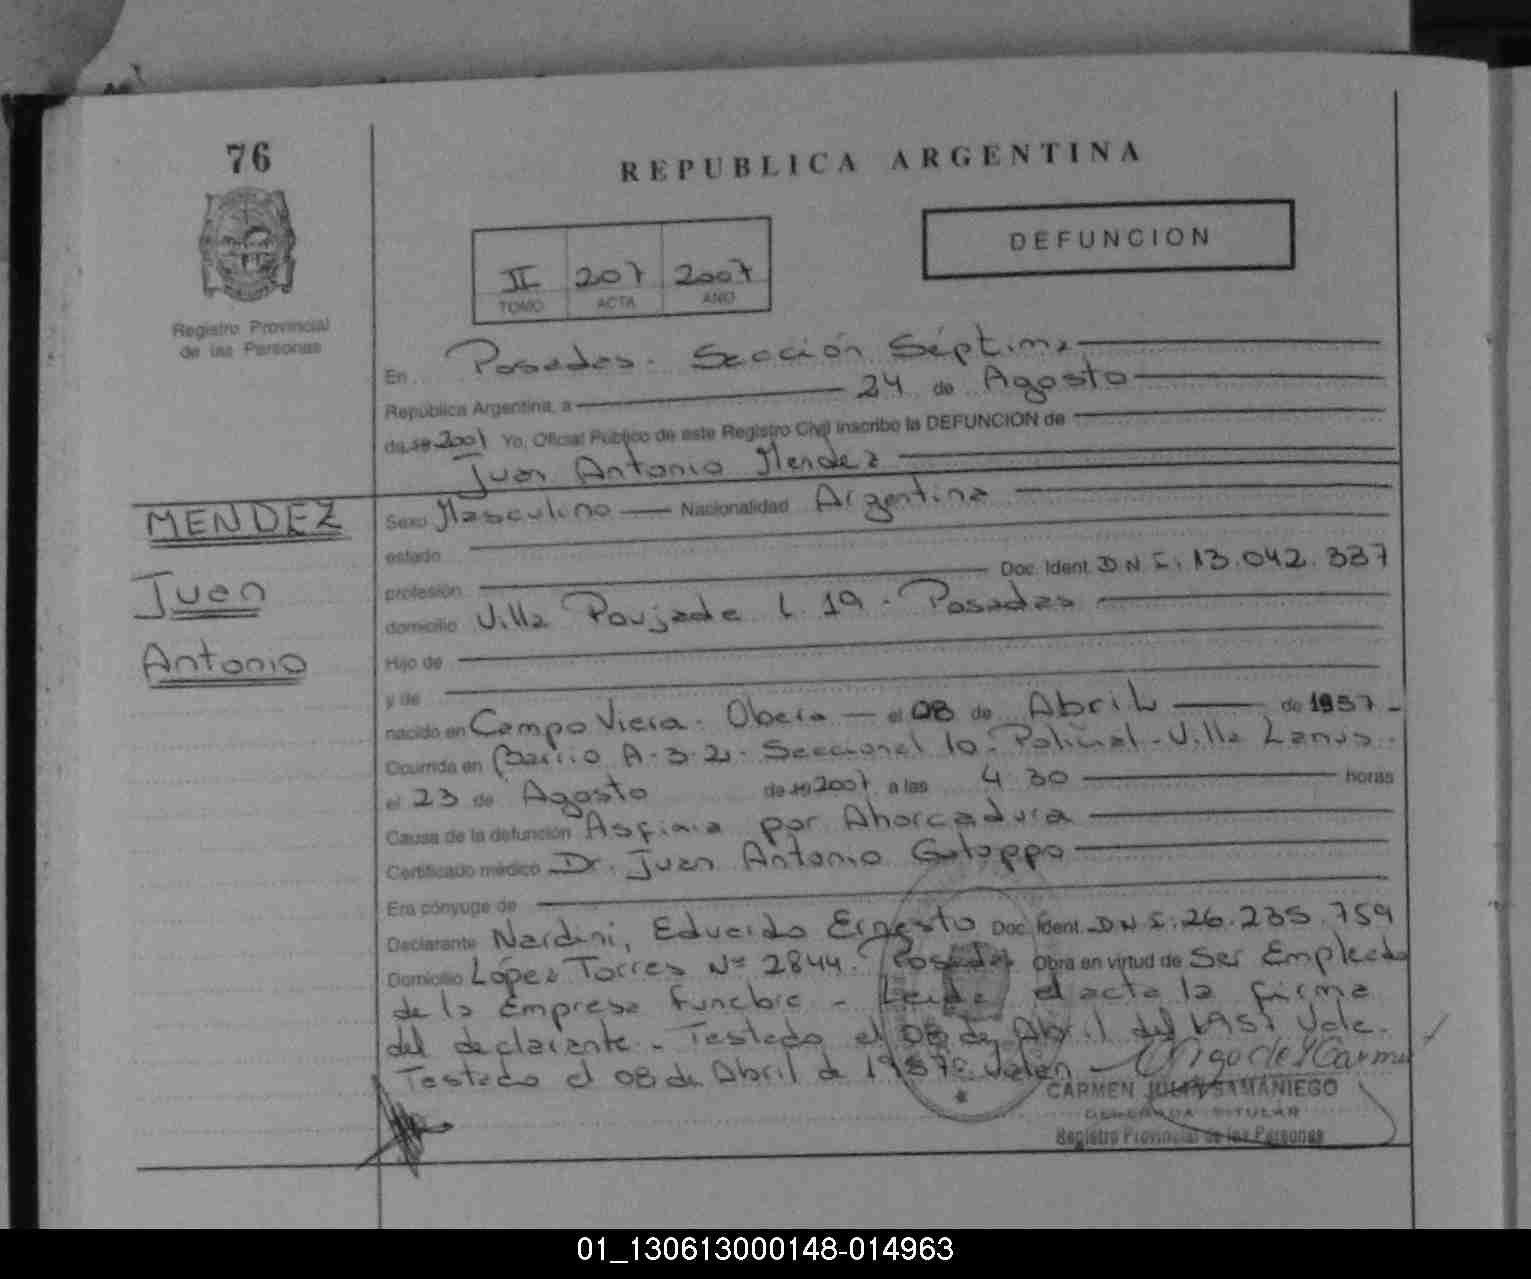 76
REPUBLICA ARGENTINA
DEFUNCION
II 207 2007
TOMO ACTA AÑO
Registro Provincial
de las Personas
En Posadas - Sección Séptima
República Argentina, a 24 de Agosto
de 19 2007 Yo, Oficial Público de este Registro Civil inscribo la DEFUNCION de
Juan Antonio Mendez
MENDEZ
Juan
Antonio
Sexo Masculino Nacionalidad Argentina
estado
profesión Doc. Ident. D N I: 13.042.337
domicilio Villa Poujade L 19 - Posadas
Hijo de
y de
nacido en Campo Viera - Obera - el 08 de Abril de 1957 -
Ocurrida en Barrio A-3-2 - Seccional 10 - Policial - Villa Lanus -
el 23 de Agosto de 19 2007 a las 4:30 horas
Causa de la defunción Asfixia por Ahorcadura
Certificado médico Dr. Juan Antonio
Era cónyuge de
Declarante Nardini, Eduardo Ernesto Doc. Ident. D N I: 26.235.759
Domicilio López Torres Nº 2844 - Posadas Obra en virtud de Ser Empleado
de la Empresa Funebre - Leida el acta la firma
del declarante - Testado el 08 de Abril del 1957 Vale -
Testado el 08 de Abril de 1957 Valen -
CARMEN JULIA SAMANIEGO
DELEGADA TITULAR
Registro Provincial de las Personas
01_130613000148-014963